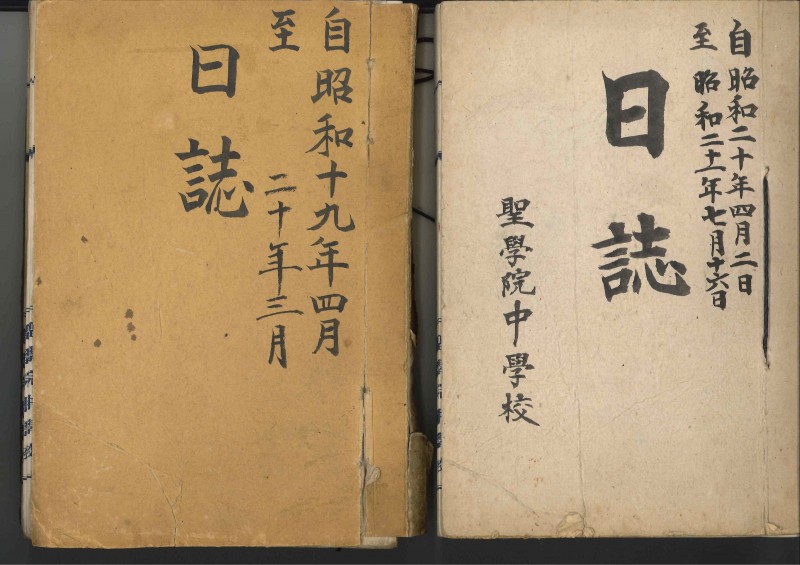 自 昭和十九年四月
至 二十年三月
日誌
自 昭和二十年四月二日
至 昭和二十一年七月十六日
日誌
聖學院中學校